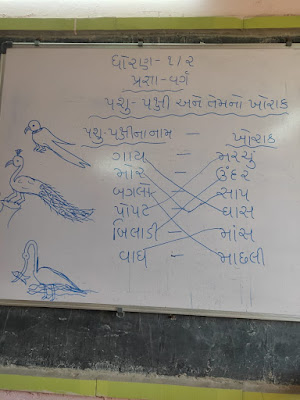 ધોરણ - ૧/૨
પ્રજ્ઞા - વર્ગ
પશુ - પક્ષી અને તેમનો ખોરાક
પશુ-પક્ષીના નામ - ખોરાક
ગાય - મરચું
મોર - ઉંદર
બગલો - સાપ
પોપટ - ઘાસ
બિલાડી - માંસ
વાઘ - માછલી